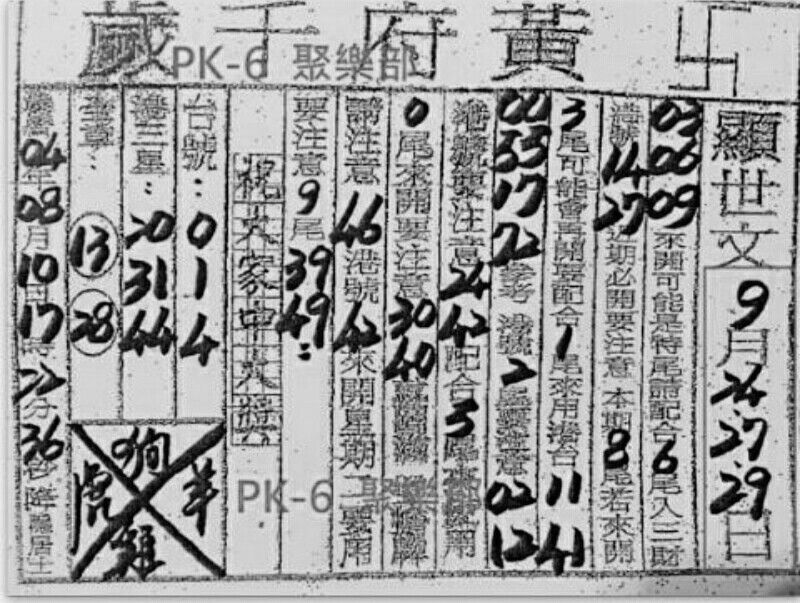 卐黃府千歲
PK-6 聚樂部
顯世文 9月24.27.29日
03 06 09 來開可能是特尾請配合6尾入三財
港號 14 27 近期必開要注意 本期8尾若來開
3尾可能會再開要配合1尾來用湊合 11 41
00 55 17 72 參考 港號2尾要注意 02 12
港號要注意 24 42 配合5尾來用
0尾來開要注意 30 40
請注意 46 港號 42 來開星期二要用
要注意9尾 39 49:
祝大家中大獎
台號: 0 1 4
港三星: 20 31 44
13 28
04年08月10日17時22分36秒降 居士
狗
虎 羊
雞
PK-6 聚樂部